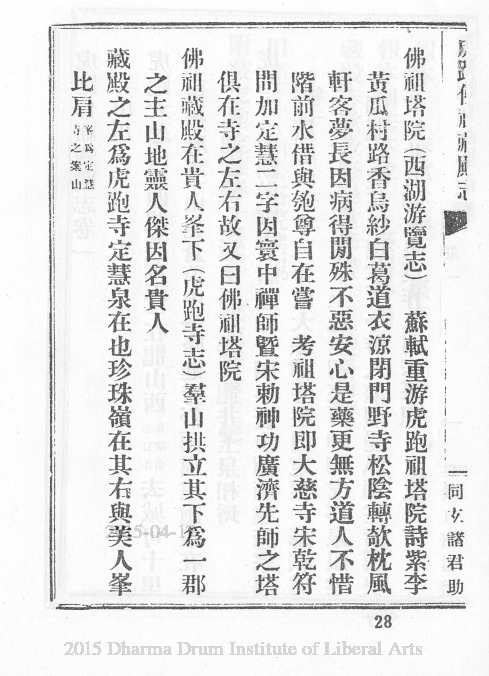 佛祖塔院(西湖游覽志) 蘇軾重游虎跑祖塔院詩紫李
黃瓜村路香烏紗白葛道衣涼閉門野寺松陰轉欹枕風
軒客夢長因病得閒殊不惡安心是藥更無方道人不惜
階前水借與匏尊自在嘗 考祖塔院即大慈寺宋乾符
間加定慧二字因寰中禪師暨宋勅神功廣濟先師之塔
俱在寺之左右故又曰佛祖塔院
佛祖藏殿在貴人峯下(虎跑寺志)羣山拱立其下為一郡
之主山地靈人傑因名貴人
藏殿之左為虎跑寺定慧泉在也珍珠嶺在其右與美人峯
比肩 峯為定慧寺之案山
虎跑佛祖藏殿志
同女諸君助
28
2015-04-1
2015 Dharma Drum Institute of Liberal Arts